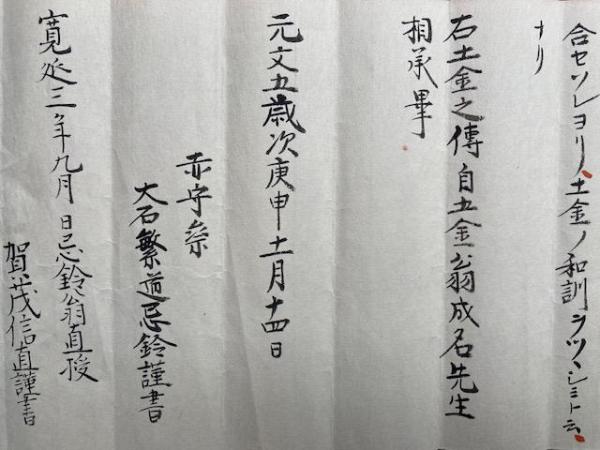 合セソレヨリ土金ノ和訓ヲツヽシミト云
ナリ
右土金之傳自五金翁成名先生
相承畢
元文五歳次庚申十一月十四日
赤守奈
大石繁道忌鈴謹書
寛延三年九月 日忌鈴翁直授
賀茂信直謹書